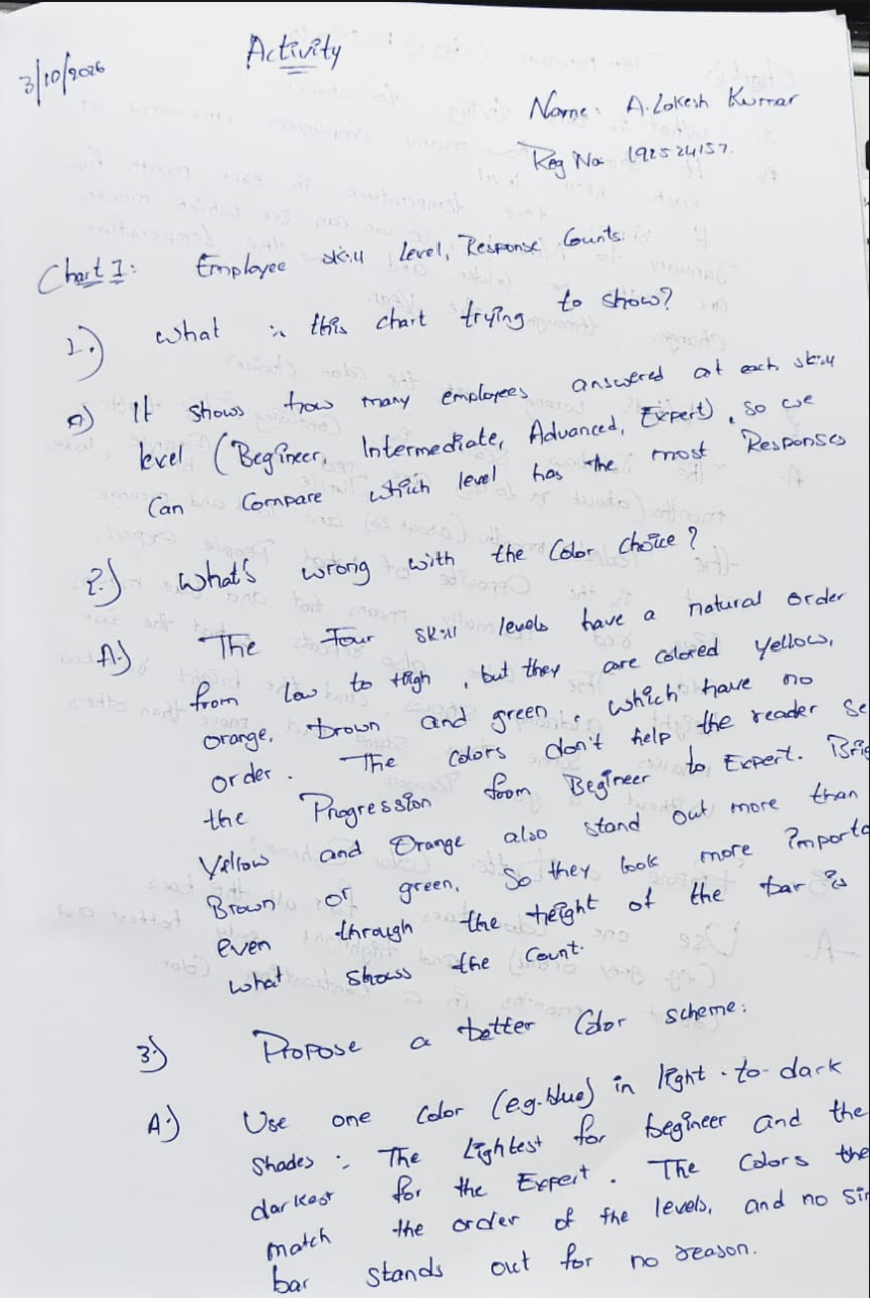 Activity
3/10/2026
Name: A. Lokesh Kumar
Reg No: 192524157.
Chart 1: Employee skill level, Response Counts.
1.) What is this chart trying to show?
A) It shows how many employees answered at each skill
level (Begineer, Intermediate, Advanced, Expert), so we
can Compare which level has the most Responses
2.) What's wrong with the Color choice?
A.) The Four skill levels have a natural order
from low to High, but they are colored yellow,
orange, brown and green, which have no
order. The colors don't help the reader se
the Progression from Begineer to Expert. Brig
Yellow and Orange also stand out more than
Brown or green, So they look more importa
even through the height of the bar is
what shows the Count.
3.) Propose a better Color scheme:
A.) Use one Color (e.g. blue) in light-to-dark
Shades: The Lightest for begineer and the
darkest for the Expert. The Colors the
match the order of the levels, and no sin
bar stands out for no reason.